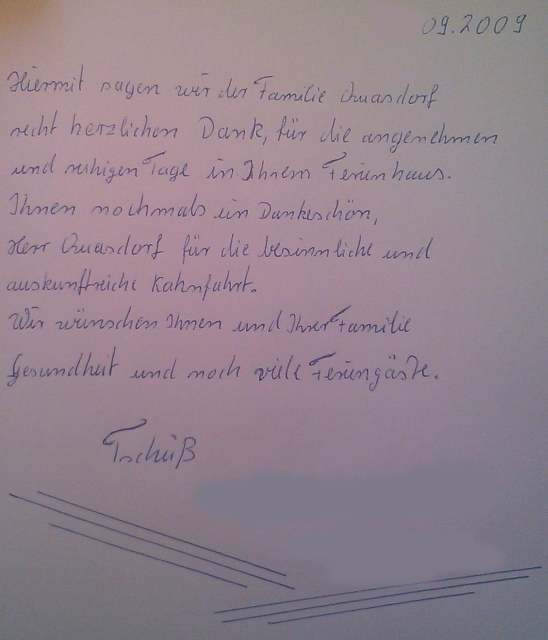 09.2009
Hiermit sagen wir der Familie Quasdorf
recht herzlichen Dank, für die angenehmen
und ruhigen Tage in Ihrem Ferienhaus.
Ihnen nochmals ein Dankeschön,
Herr Quasdorf für die besinnliche und
auskunftreiche Kahnfahrt.
Wir wünschen Ihnen und Ihrer Familie
Gesundheit und noch viele Feriengäste.
Tschüß